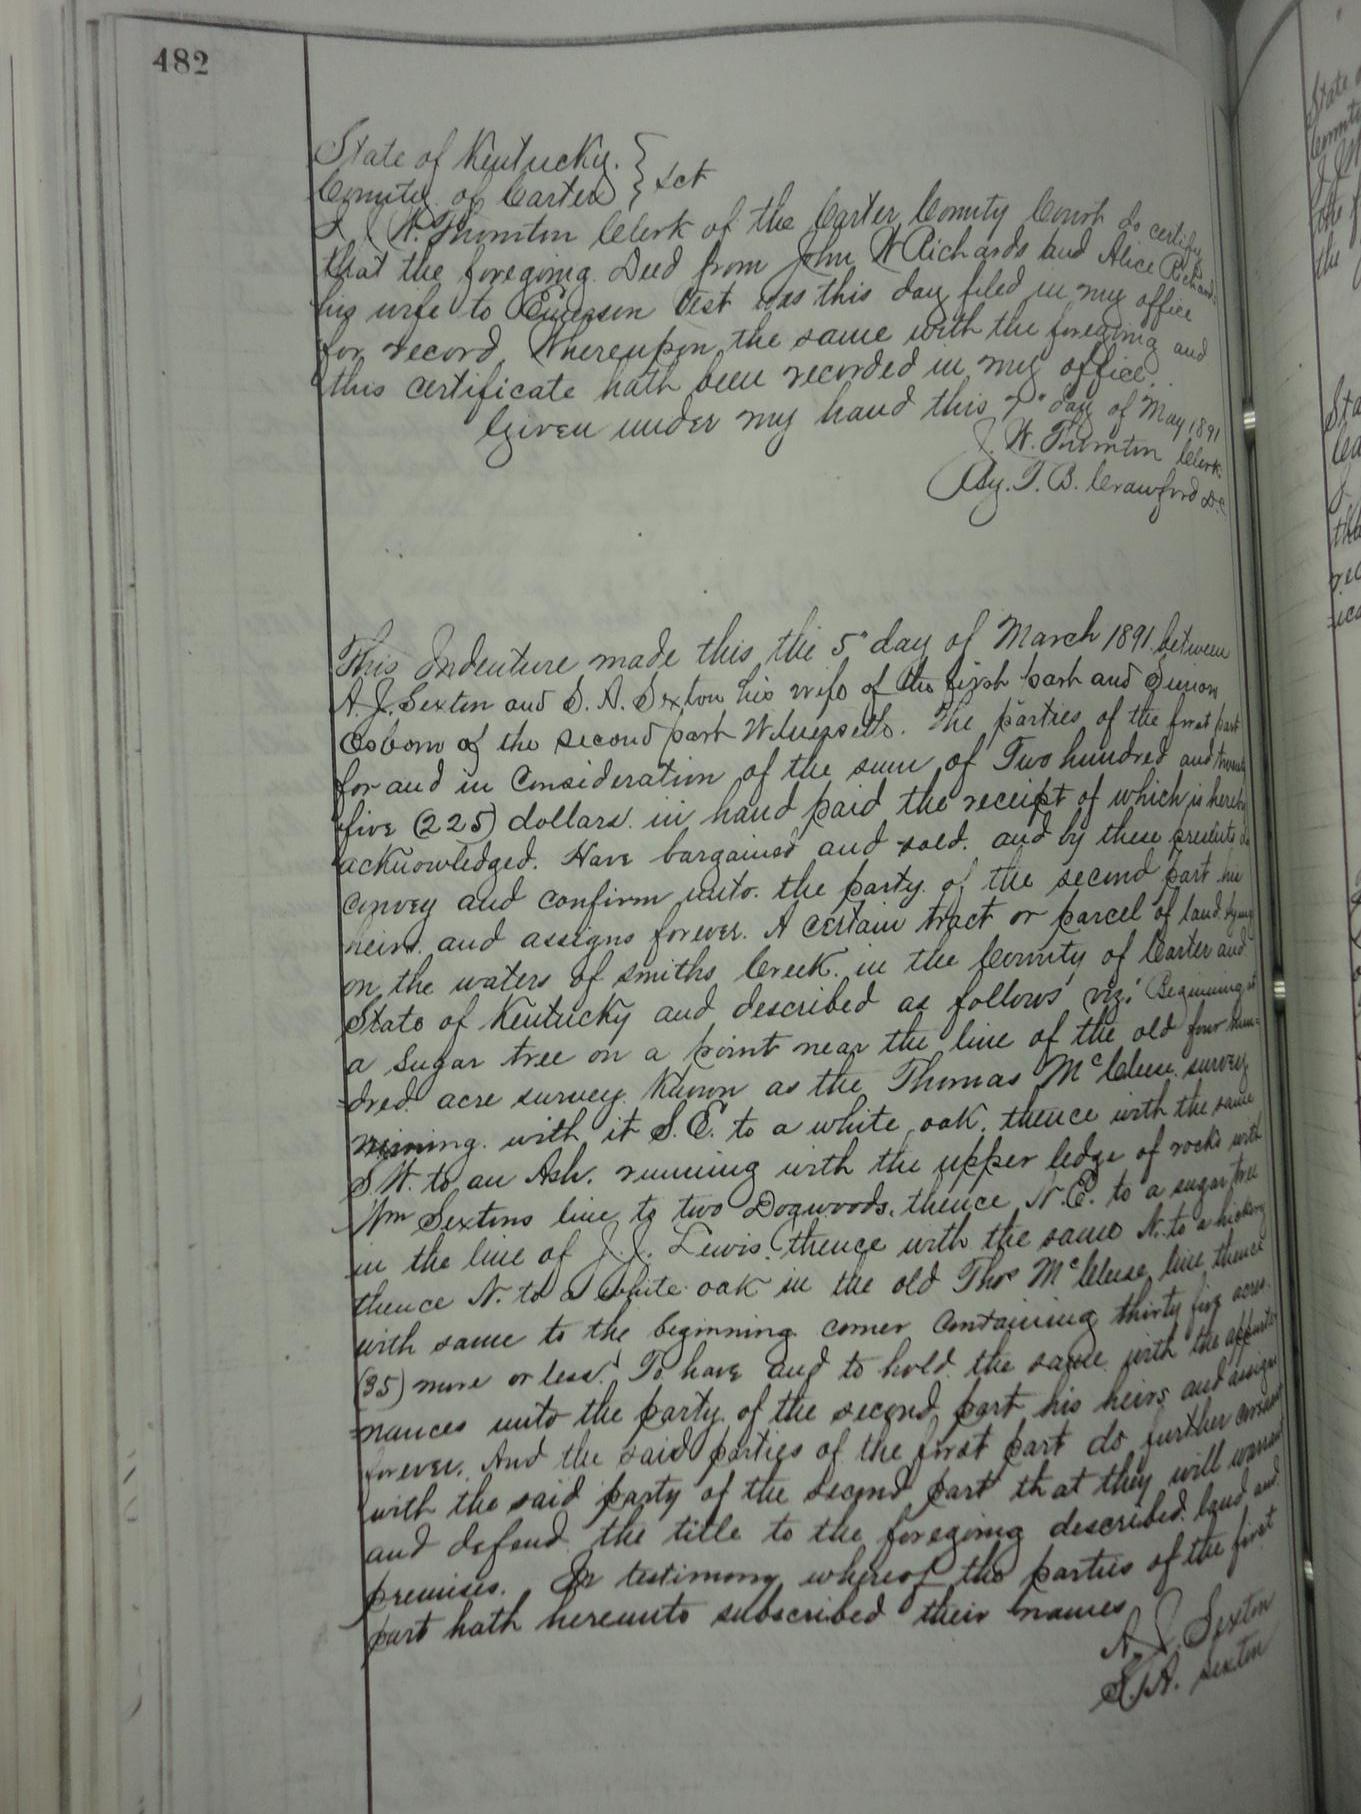 482
State of Kentucky. } Sct
County of Carter }
I J. W. Thornton Clerk of the Carter County Court do certify
that the foregoing Deed from John W Richards and Alice Richards
his wife to Emerson was this day filed in my office
for record, Whereupon the same with the foregoing and
this certificate hath been recorded in my office.
Given under my hand this 7" day of May 1891
J. W. Thornton Clerk.
By. T. B. Crawford D.C
This Indenture made this the 5" day of March 1891 between
A. J. Sexton and S. A. Sexton his wife of the first part and
Osborn of the second part Witnesseth. The parties of the first part
for and in Consideration of the sum of Two hundred and twenty
five (225) dollars. in hand paid the receipt of which is hereby
acknowledged. Have bargained and sold. and by these presents do
convey and confirm unto. the party of the second part his
heirs. and assigns forever. A certain tract or parcel of land. lying
on the waters of smiths Creek. in the County of Carter and
State of Kentucky and described as follows viz: Beginning at
a sugar tree on a point near the line of the old four hun=
=dred acre survey. Known as the Thomas McCleese survey
running. with it S. E. to a white oak. thence with the same
S W. to an Ash. running with the upper ledge of rocks with
Wm Sextons line to two Dogwoods. thence N. E. to a sugar tree
in the line of J. J. Lewis. thence with the same N. to a hickory
thence N. to a white oak in the old Thos McCleese line thence
with same to the beginning corner Containing thirty five acres.
(35) more or less. To have and to hold the same with the appurte
=nances unto the party of the second part his heirs and assigns
forever. And the said parties of the first part do further covenant
with the said party of the second part that they will warrant
and defend the title to the foregoing described. land and
premises. In testimony whereof the parties of the first
part hath hereunto subscribed their names
A. J. Sexton
S. A. Sexton